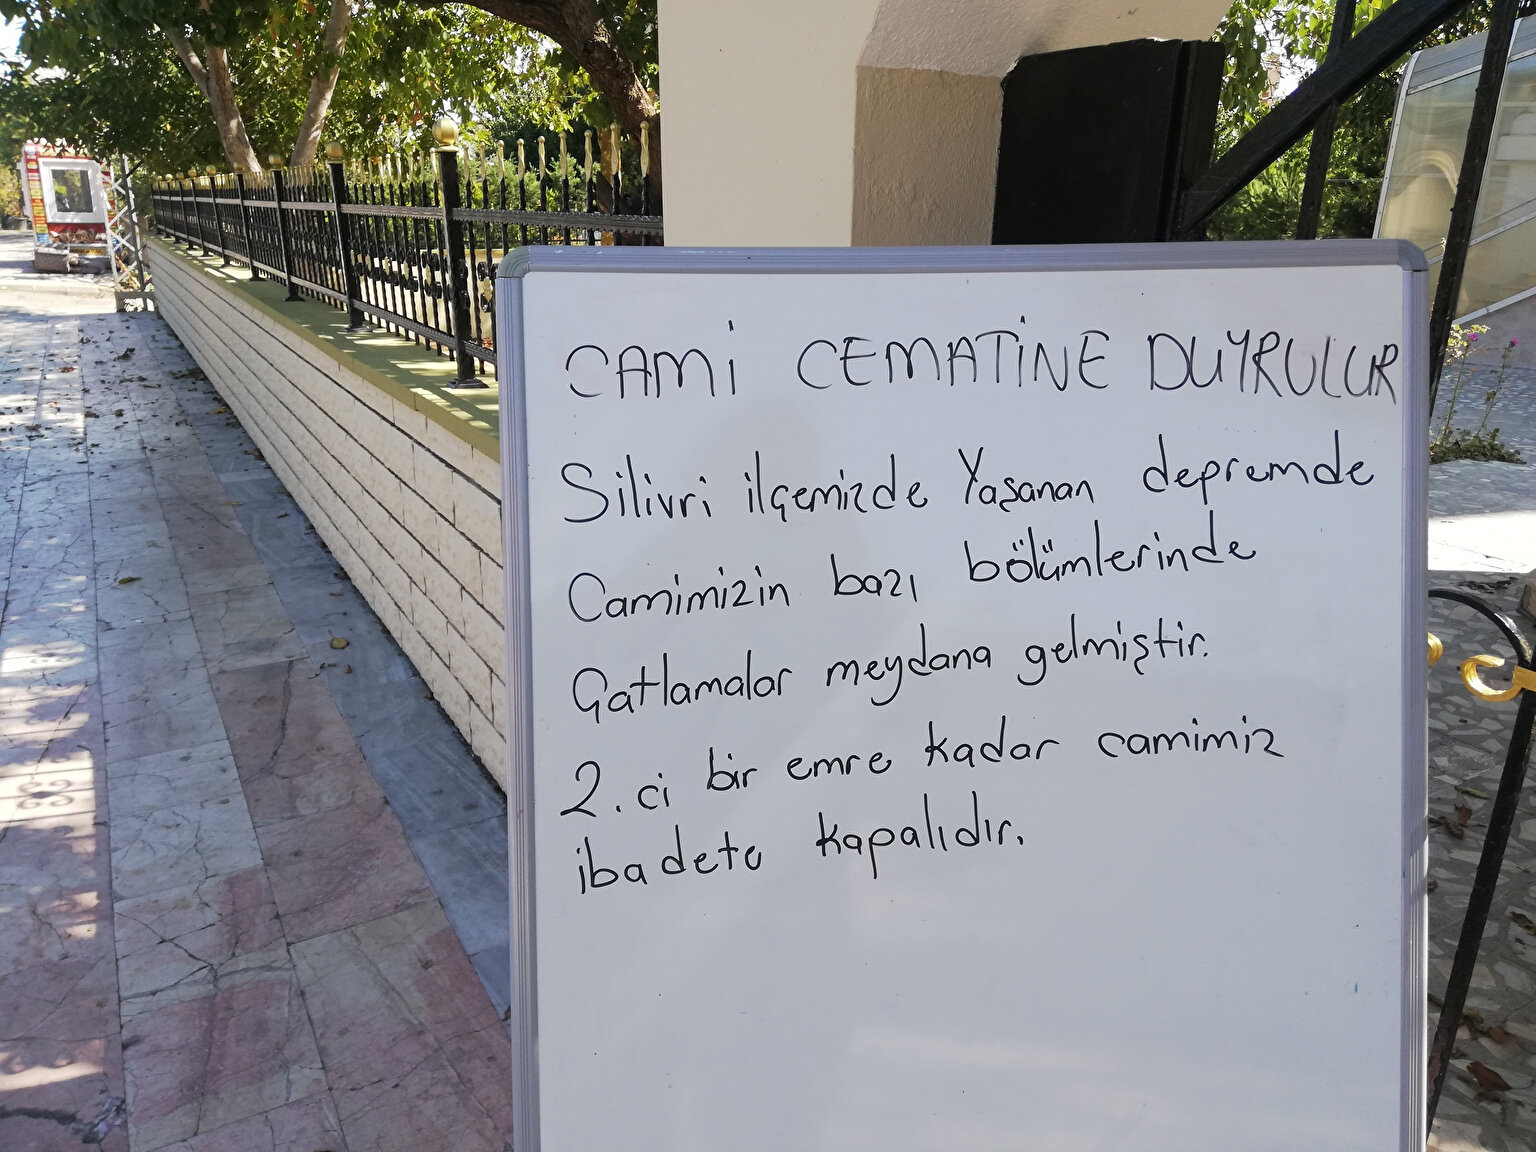 CAMİ CEMATİNE DUYRULUR
Silivri ilçemizde Yaşanan depremde
Camimizin bazı bölümlerinde
Çatlamalar meydana gelmiştir.
2.ci bir emre kadar camimiz
ibadete kapalıdır.